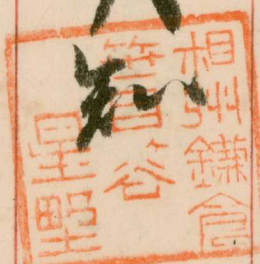 相州鎌倉
笹目谷
星野